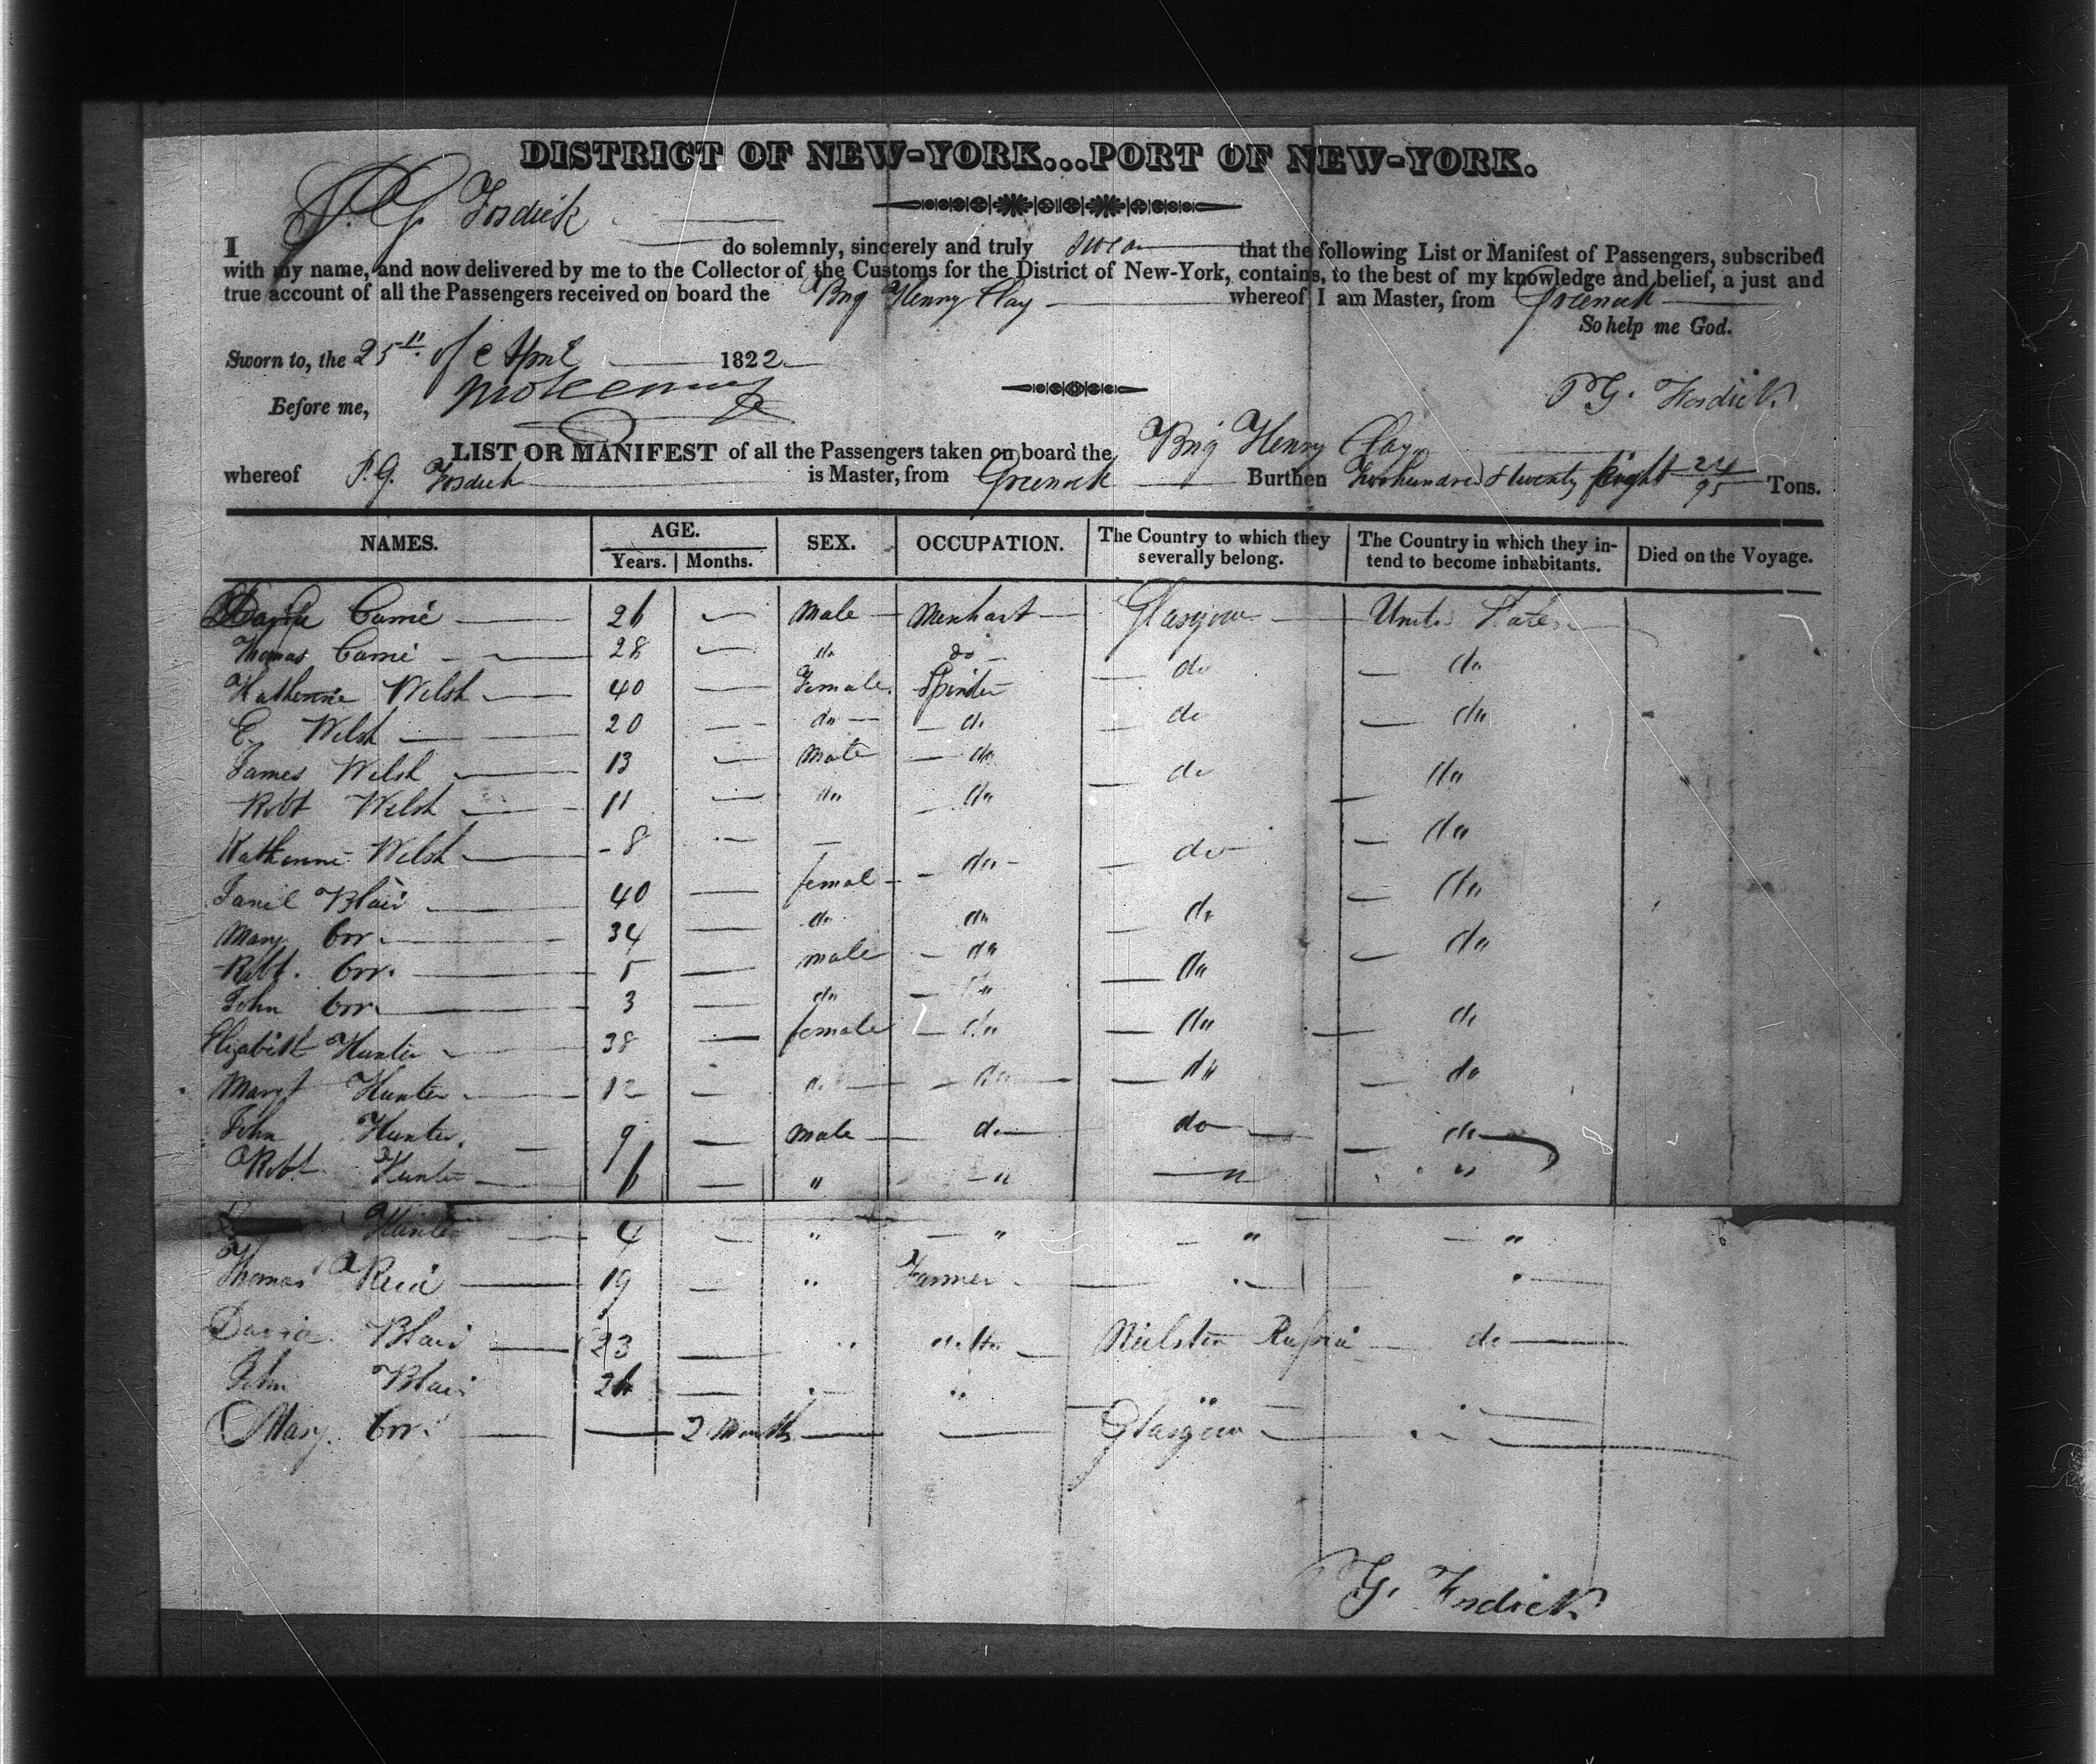 DISTRICT OF NEW-YORK...PORT OF NEW-YORK.
I P. G. Fosdick do solemnly, sincerely and truly swear that the following List or Manifest of Passengers, subscribed
with my name, and now delivered by me to the Collector of the Customs for the District of New-York, contains, to the best of my knowledge and belief, a just and
true account of all the Passengers received on board the Brig Henry Clay whereof I am Master, from Greenock
So help me God.
Sworn to, the 25th of April 1822
Before me,
P G. Fosdick
LIST OR MANIFEST of all the Passengers taken on board the Brig Henry Clay
whereof P. G. Fosdick is Master, from Greenock Burthen Two hundred & twenty Eight 24/95 Tons.
NAMES. AGE. Years. Months. SEX. OCCUPATION. The Country to which they severally belong. The Country in which they intend to become inhabitants. Died on the Voyage.
Currie 26 Male Merchant Glasgow United States
Thomas Currie 28 do do do do
Katherine Welsh 40 Female Spinster
E Welsh 20 do do do do
James Welsh 13 Male do do do
Robt Welsh 11 do do
Katherine Welsh 8 do do do
Blair 40 female do
Mary Orr 34 do do do
Robt. Orr. 5 male do do do
John Orr 3 do do
Elizabeth Hunter 38 female do do do
Margt Hunter 12 do do do do
John Hunter 9 Male do do do
Robt Hunter 6 " " " "
Hunter 4 " " " "
Thomas Reid 19 " Farmer " "
David Blair 23 " do
John Blair " "
Mary Orr 2 Months Glasgow "
G. Fosdick